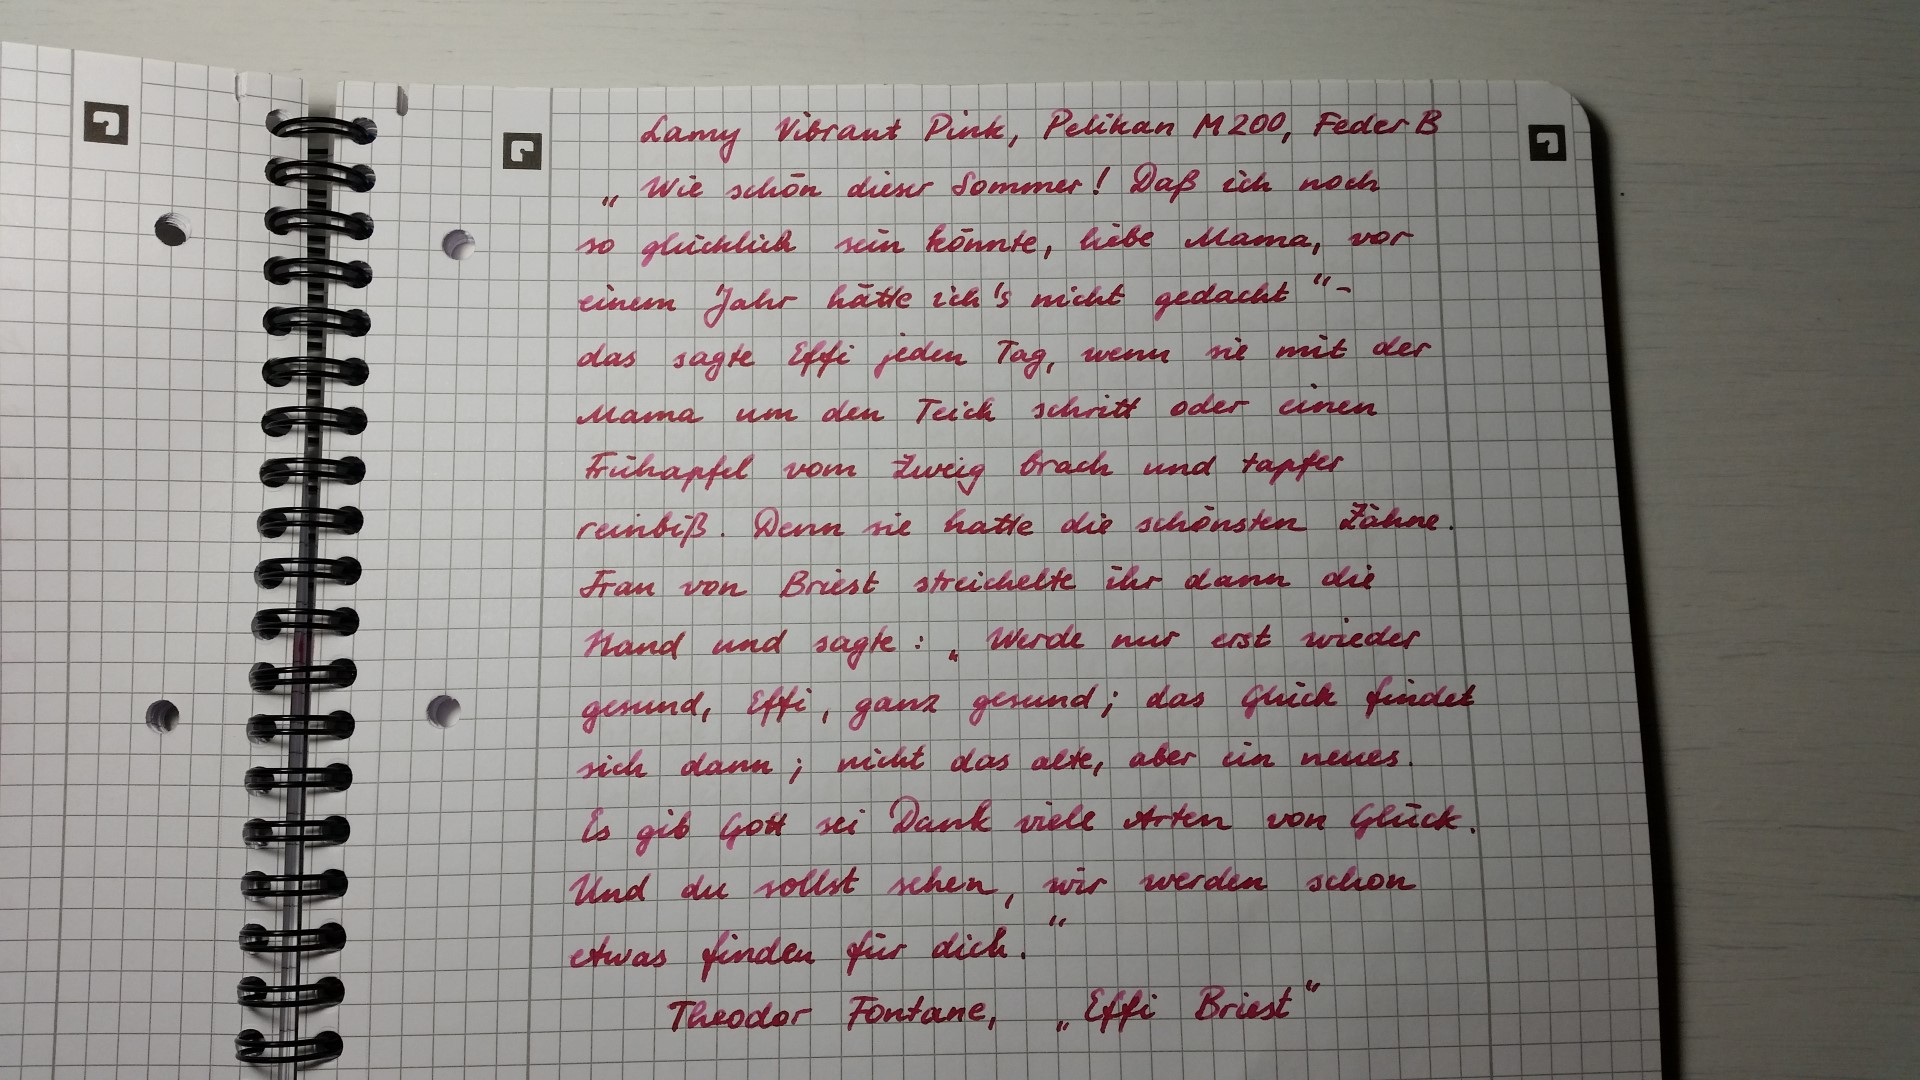 Lamy Vibrant Pink, Pelikan M200, Feder B
„Wie schön dieser Sommer! Daß ich noch
so glücklich sein könnte, liebe Mama, vor
einem Jahr hätte ich's nicht gedacht" -
das sagte Effi jeden Tag, wenn sie mit der
Mama um den Teich schritt oder einen
Frühapfel vom Zweig brach und tapfer
reinbiß. Denn sie hatte die schönsten Zähne.
Frau von Briest streichelte ihr dann die
Hand und sagte: „Werde nur erst wieder
gesund, Effi, ganz gesund; das Glück findet
sich dann; nicht das alte, aber ein neues.
Es gib Gott sei Dank viele Arten von Glück.
Und du sollst sehen, wir werden schon
etwas finden für dich."
Theodor Fontane, „Effi Briest"